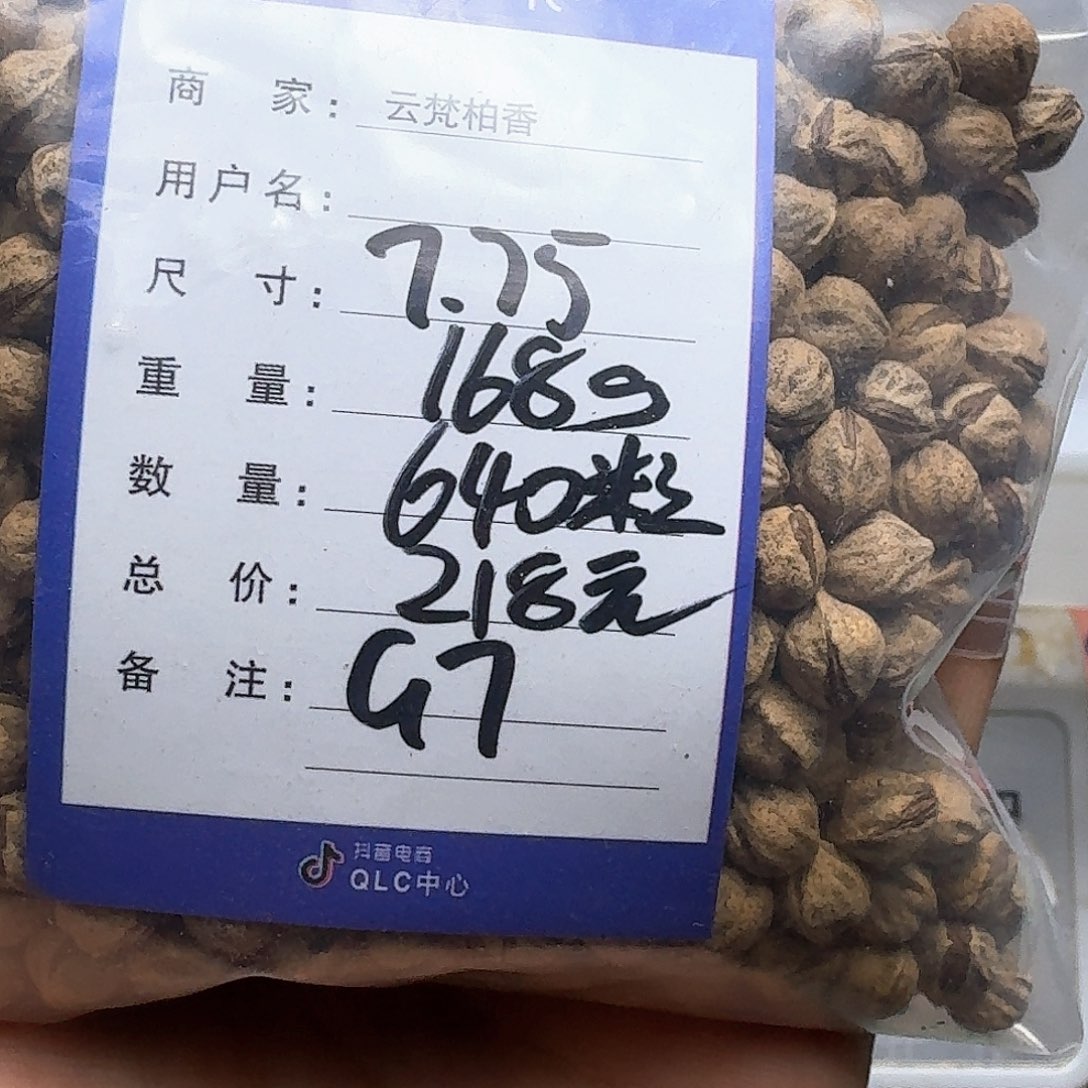 商 家: 云梵柏香
用户名:
尺 寸: 7.75
重 量: 168g
数 量: 640粒
总 价: 218元
备 注: G7
抖音电商
QLC中心